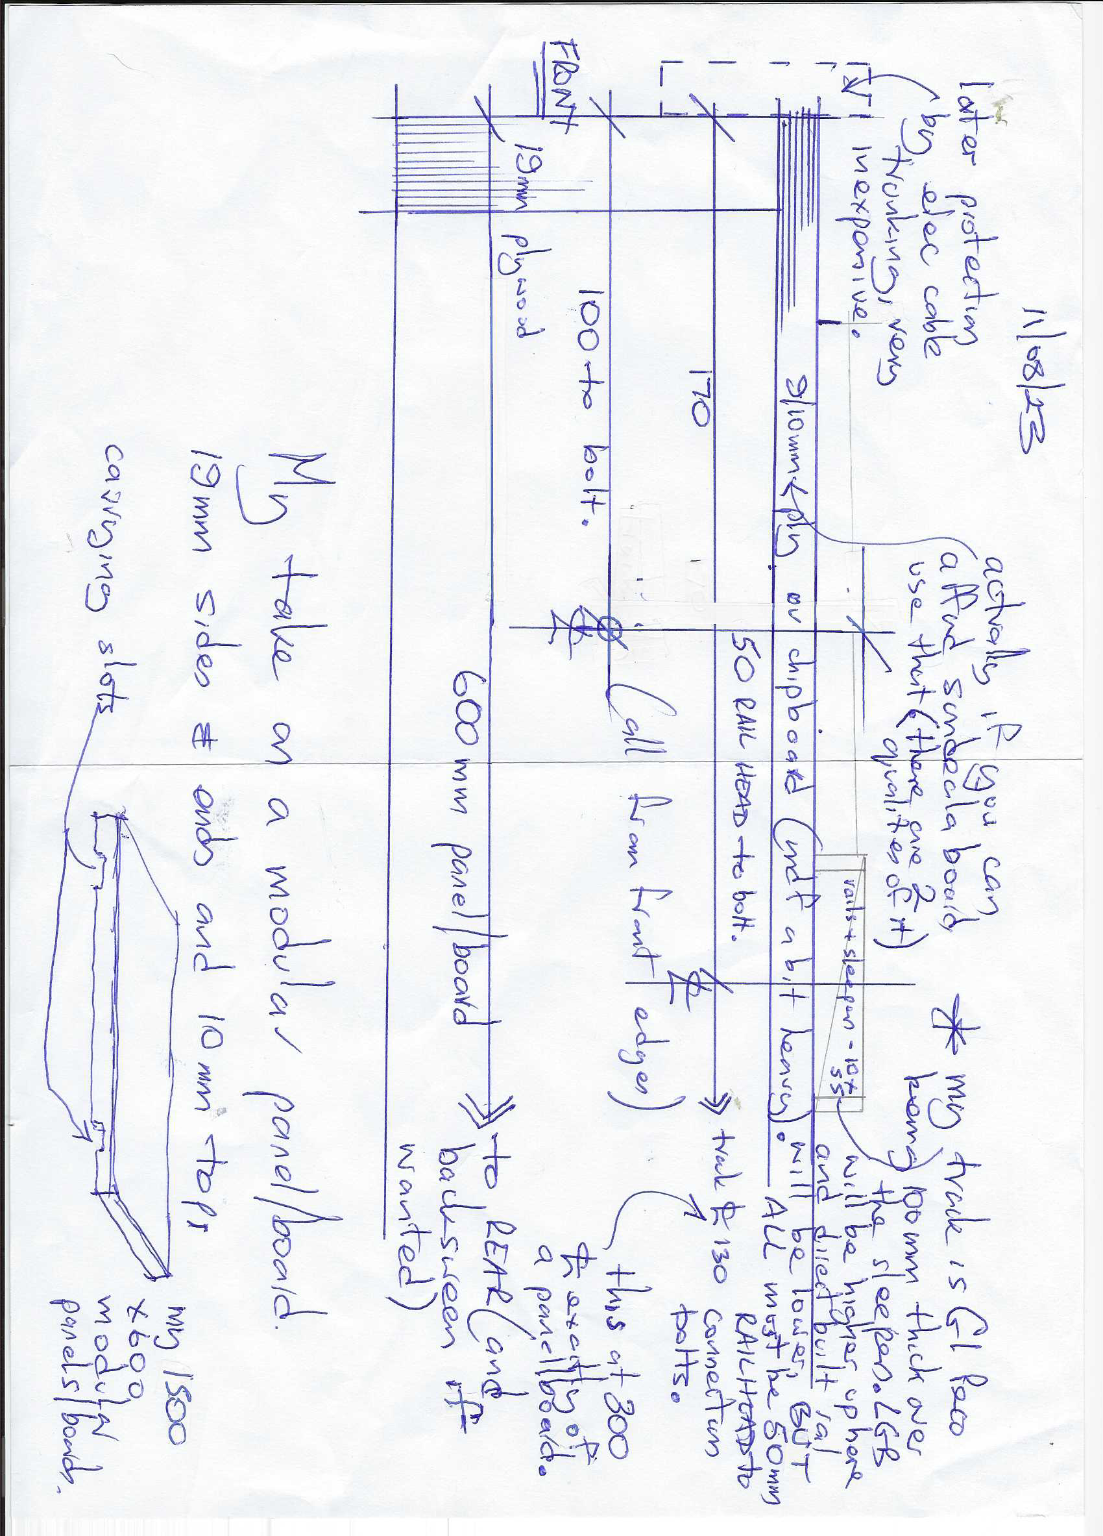 11/08/23
later protection
by elec cable
trunking, very
inexpensive.
actually if you can
affind sundeala board,
use that (there are 2
qualities of it)
* my track is G1 Peco
being) 100mm thick over
the sleepers. LGB
will be higher up here
and direct built rail
will be lower, BUT
ALL must be 50mm
RAILHEAD to
connection
bolts.
rails + sleepers - 10x
55
9/10mm ply or chipboard (mdf a bit heavy).
170
50 RAIL HEAD to bolt.
track 130
100 to bolt.
(all from front edges)
this at 300
exactly of
a panel/board.
FRONT
19mm plywood
600mm panel/board
to REAR (and
backsceen if
wanted)
My take on a modular panel/board.
19mm sides & ends and 10mm tops
carrying slots
my 1500
x 600
modular
panels/boards.